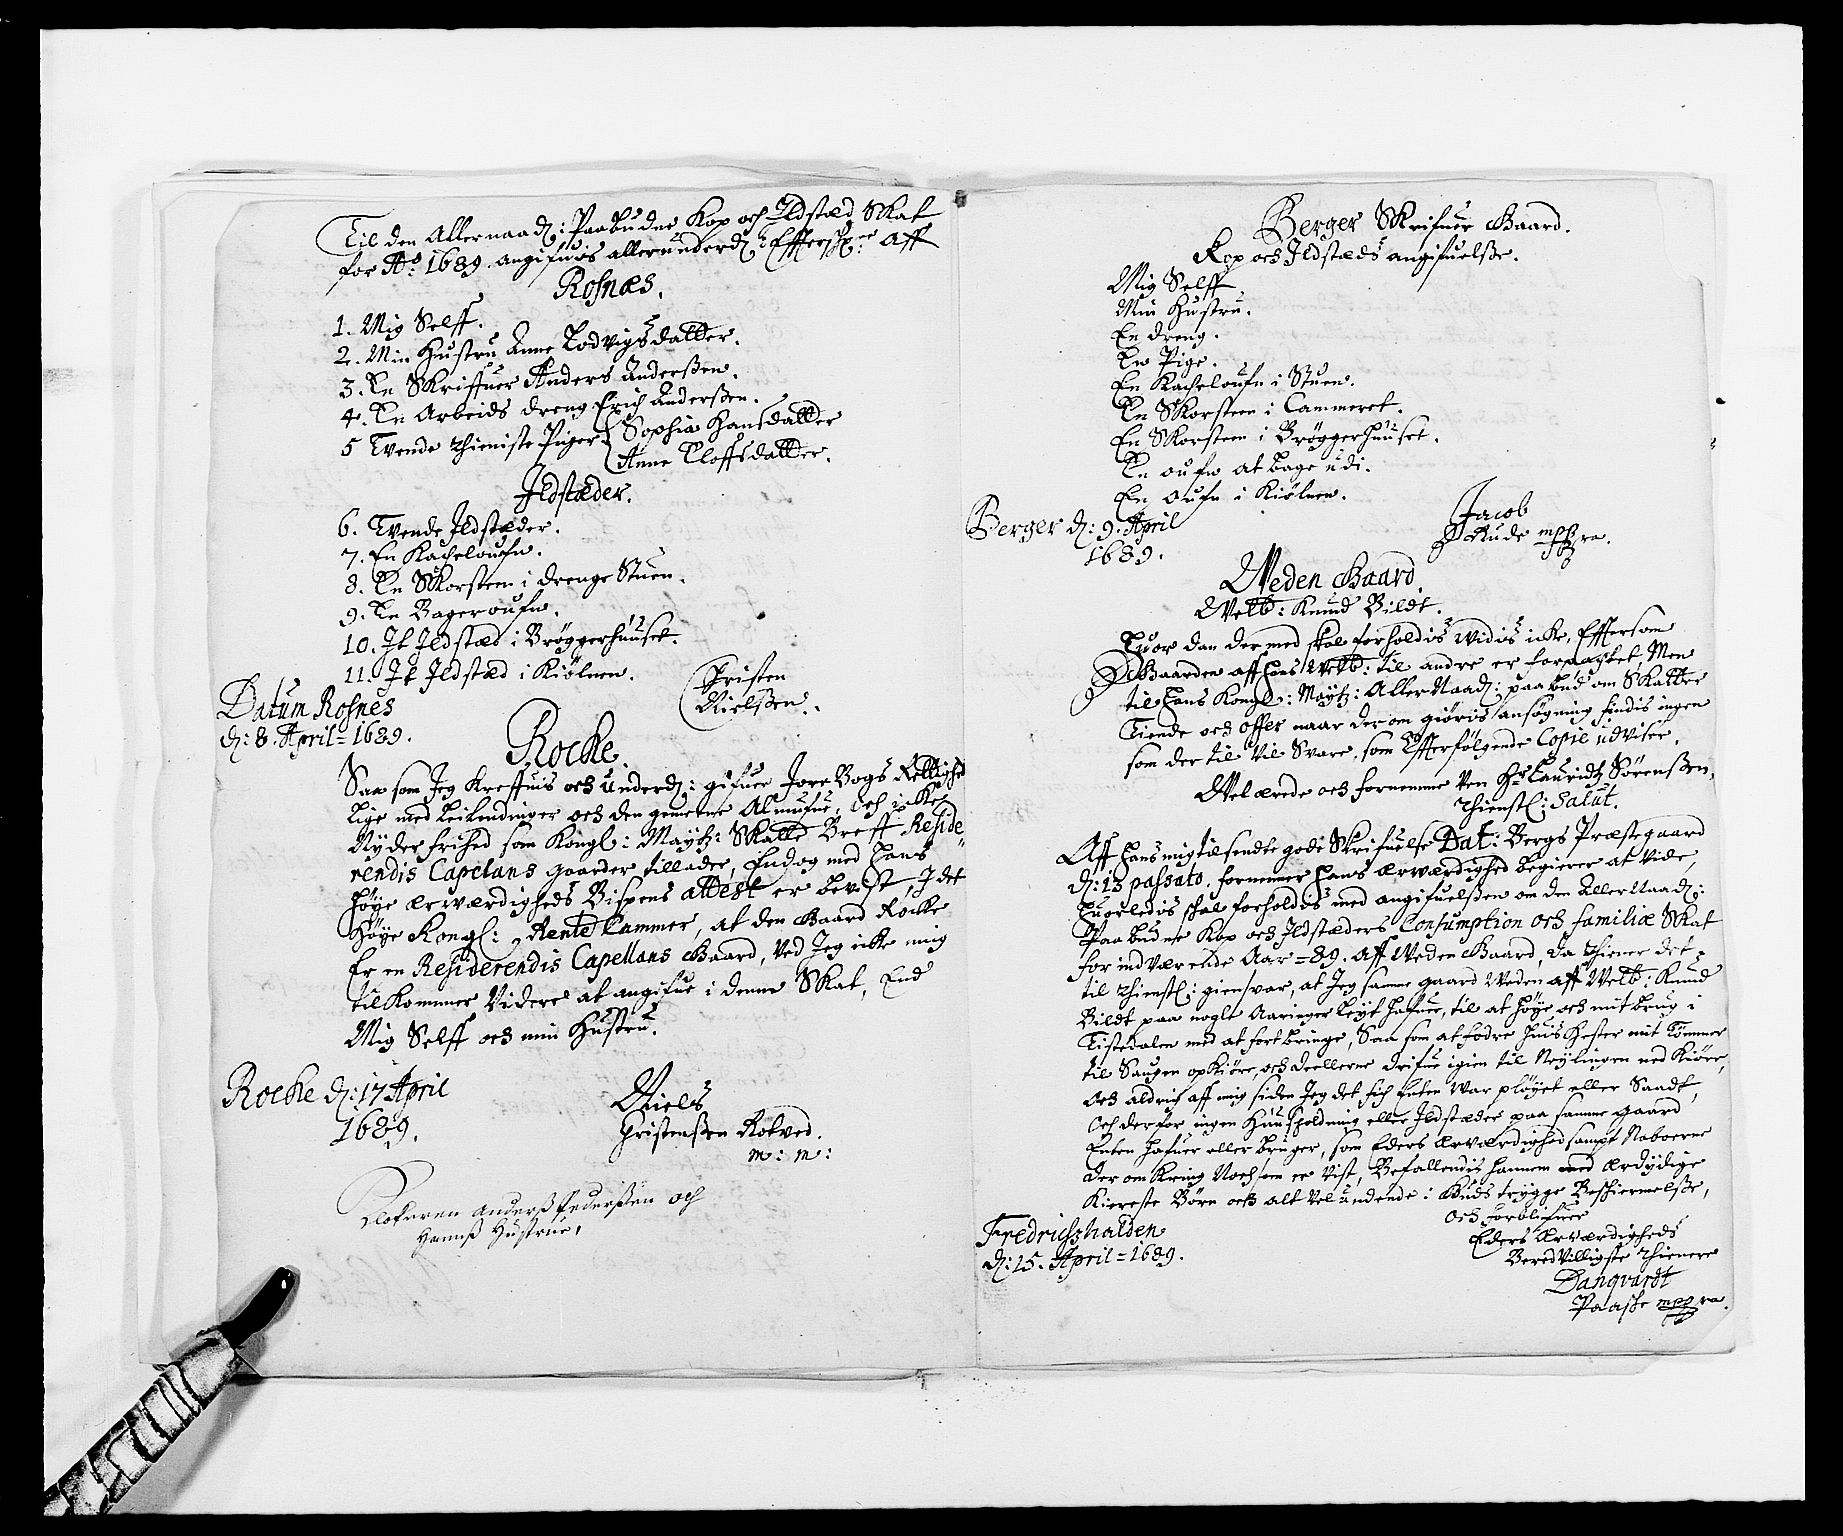 Til den Allernaad: Paabudne Kop och Ildstæd Skat
for Ao: 1689. angifvis allerunderd: Effterskr:ne Aff
Rosnæs.
1. Mig Selff.
2. Min Hustru Anne Lodvigsdatter.
3. En Skriffuer Anders Anderßen.
4. En Arbeids dreng Erich Anderßen.
5 Tvende thieniste Piger Sophia Hansdatter
Anne Eloffsdatter.
Ildstæder.
6. Tvende Ildstæder.
7. En Kachelouffn.
8. En Skorsteen i drenge Stuen.
9. En Bagerouffn.
10. Jt Ildstæd i Brøggerhuuset.
11. Jt Ildstæd i Kiølnen.
Christen
Nielßen.
Datum Rosnes
d: 8. April = 1689.
Rocke.
Saa som Jeg Kreffuis och underd: gifuer Jore Bogs Rettighed
lige med Leilendinger och den gemeene Almufue, Och icke
Nyder frihed som Kongl: Maytz: Skatte Breff Reside
rendis Capelans gaarder tillader, Endog med Hans
Høye Ærværdigheds Bispens attest er bevist, J det
Høye Kongl: Rente Cammer, at den Gaard Rocke
Er en Residerendis Capellans Gaard, Ved Jeg icke mig
tilkommer Videre at angifue i denne Skat, End
Mig Selff och min Hustru.
Rocke d: 17 April
1689.
Niels
Christenßen Rotved.
m: m:
Klokeren Anderß Pederßen och
Hannß Hustrue,
Berger Skrifuer Gaard.
Kop och Ildstæds angifuelße.
Mig Selff
Min Hustru.
En dreng.
En Pige.
En Kachelouffn i Stuen.
En Skorsteen i Cammeret.
En Skorsteen i Brøggerhuuset.
En oufn at bage udi.
En oufn i Kiølnen.
Berger d: 9. April
1689.
Jacob
Rude mppra.
Weden Gaard
Welb: Knud Bildt.
Huor dan der med skal forholdis Widis icke, Efftersom
Gaarden aff Hans Welb: til andre er forpaxtet, Men
til Hans Kongl: Maytz: Aller Naad: paabud om Skatter
Tiende och Offer naar der om giøris ansøgning findis ingen
som der til vil Svare, som Effterfølgende Copie udviser.
Welærede och fornemme Ven Hr Lauridtz Sørenßen,
thienstl: Salut.
Aff Hans mig tilsendte gode Skrifuelse Dat: Bergs Præstegaard
d: 13 passato, fornemmer Hans Ærværdighed begierer at Vide,
Huorledis skal forholdis med angifuelßen om den Aller Naad:
Paabudne Kop och Ildstæders Consumption och familiæ Skat
for indværende Aar = 89. Aff Weden Gaard, Da thiener det
til thienstl: giensvar, at Jeg samme gaard Weden aff Welb: Knud
Bildt paa nogle Aaringer leyt hafuer, til at høye och mit brug i
Tistedalen med at fort bringe, Saa som at fødre huis Hester mit Tømmer
til Saugen opkiøre, och deellerne drifue igien til Neylingen ned Kiøre,
och aldrig aff mig siden Jeg det fich Enten War pløyet eller Saadt,
Och derfor ingen Huusholdning eller Ildstæder paa samme gaard
Enten hafuer eller bruger, som Eders Ærværdighed sampt Naboerne
der omkring Nochsom er Vist, Befallendis hannem med Ærdydige
Kiereste Børn och alt Vel undende i Guds trygge Beskiermelse,
och forblifuer
Eders Ærværdigheds
Beredvilligste thienere
Danqvardt
Paaske mppra.
Fredrichshalden
d: 15. April = 1689.